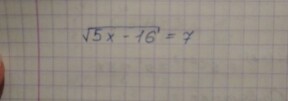 √(5x - 16) = 7